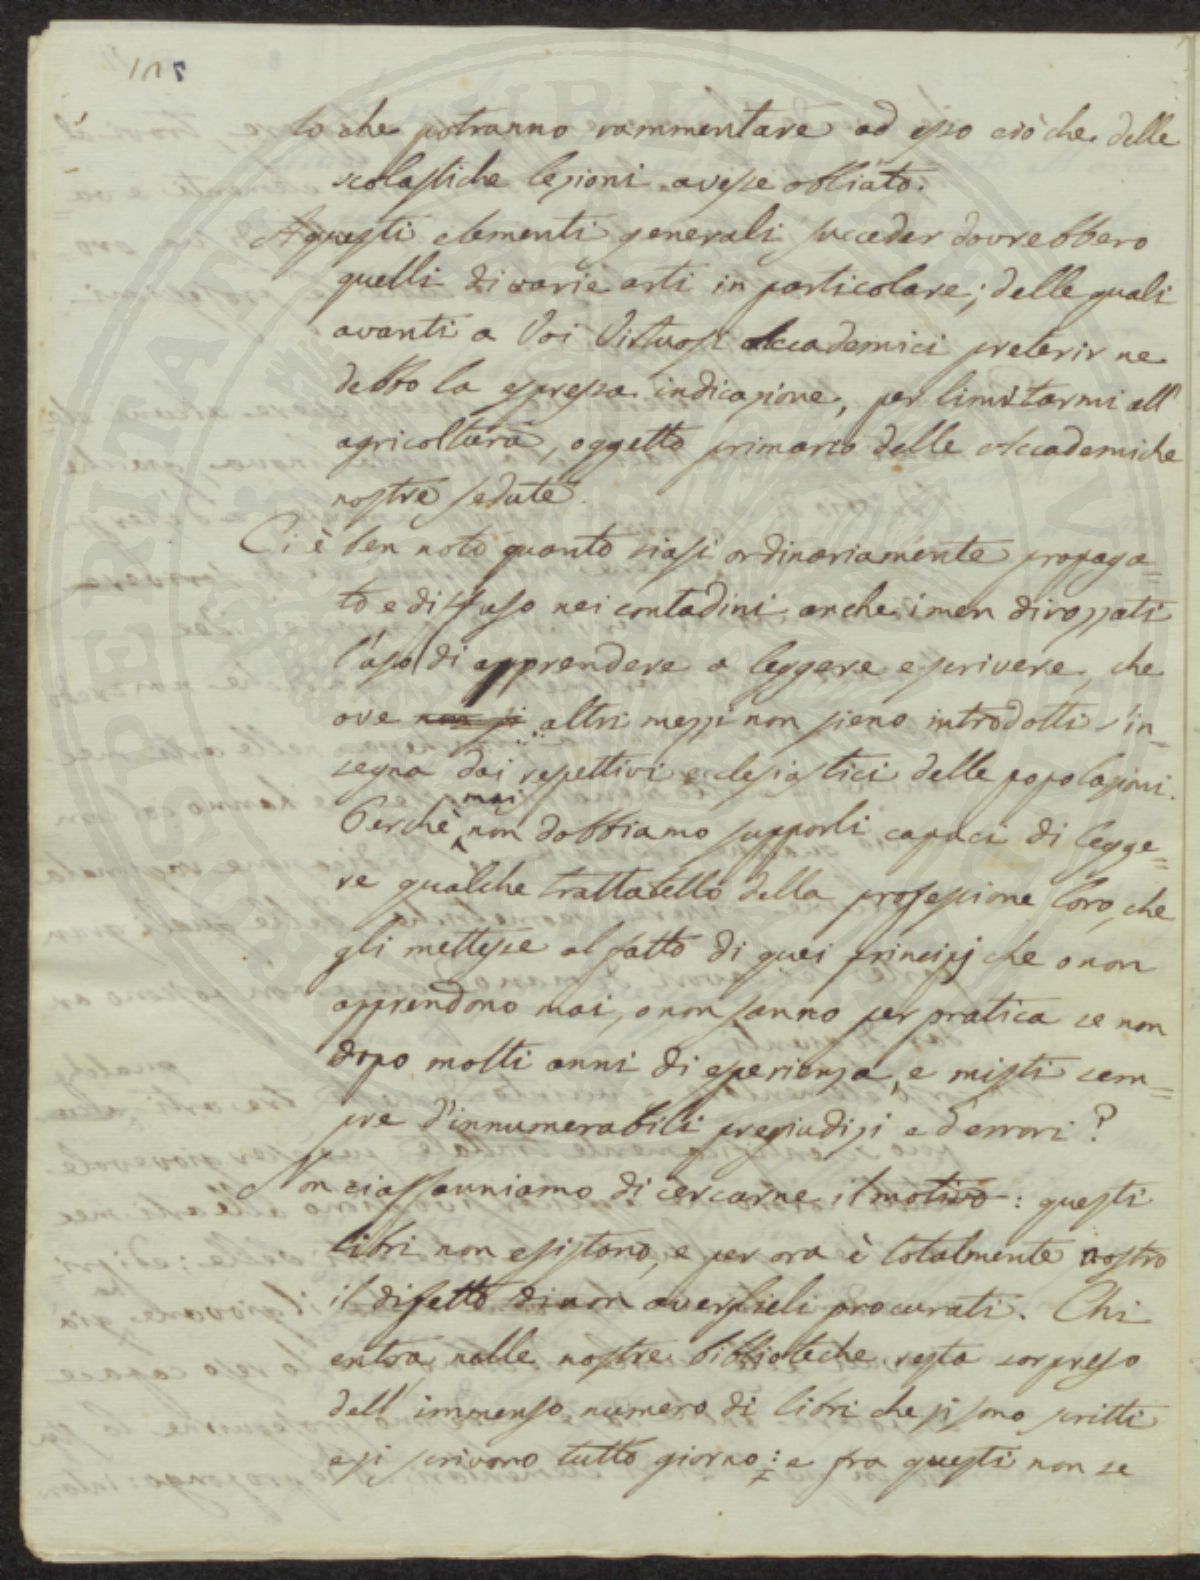 to che potranno rammentare ad esso ciò che delle
scolastiche lezioni avesse obliato.
A questi elementi generali succeder dovrebbero
quelli di varie arti in particolare; delle quali
avanti a Voi Virtuosi Accademici preterir ne
debbo la espressa indicazione, per limitarmi all'
agricoltura, oggetto primario delle Accademiche
nostre sedute.
Ci è ben noto quanto siasi ordinariamente propaga=
to e diffuso nei contadini anche i men dirozzati
l'uso di apprendere a leggere e scrivere, che
ove non si altri mezzi non sieno introdotti s'in=
segna dai respettivi ecclesiastici delle popolazioni.
Perchè mai non dobbiamo supporli capaci di legge=
re qualche trattatello della professione loro, che
gli mettesse al fatto di quei principj che o non
apprendono mai, o non sanno per pratica se non
dopo molti anni di esperienza, e misti sem=
pre d'innumerabili pregiudizi e d'errori?
Non ci affanniamo di cercarne il motivo: questi
libri non esistono, e per ora è totalmente nostro
il difetto di non averglieli procurati. Chi
entra nelle nostre biblioteche resta sorpreso
dell'immenso numero di libri che si sono scritti
e si scrivono tutto giorno: e fra questi non se